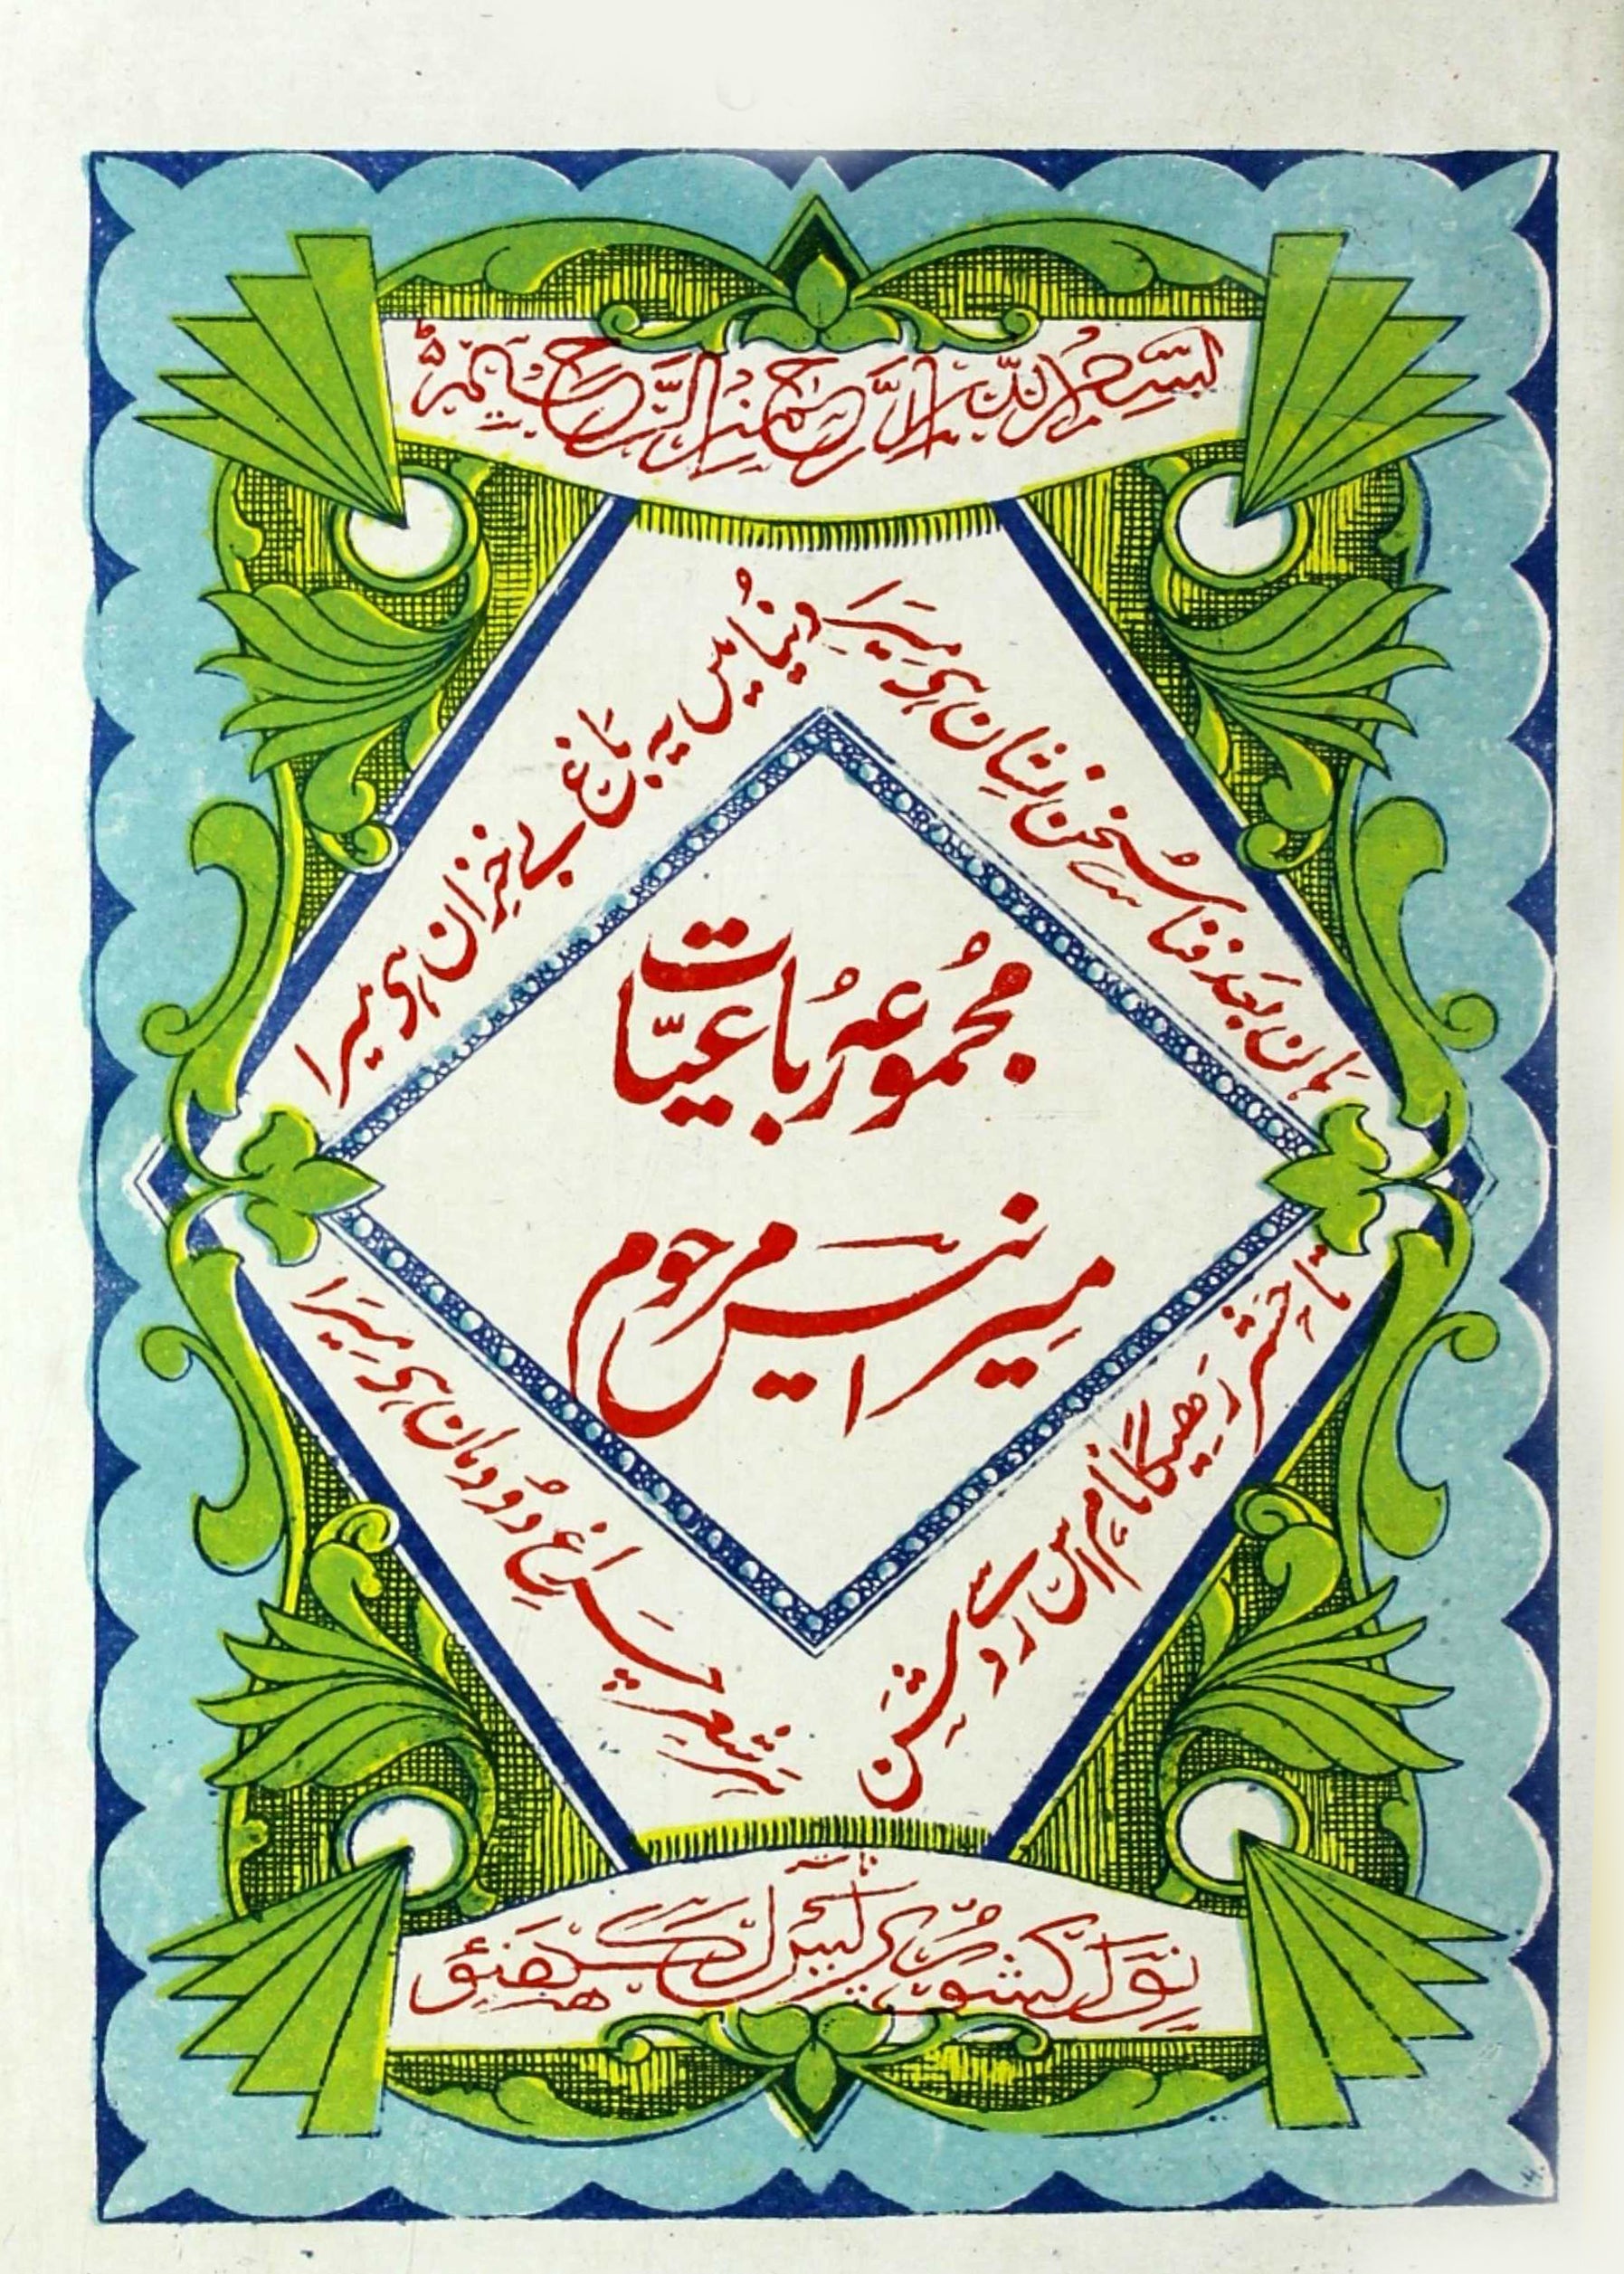 بسم اللہ الرحمن الرحیم
ہان بعد فنا سخن نشان ہی میرا
دنیا میں یہ باغ بے خزان ہی میرا
مجموعہ رباعیات
میر انیس مرحوم
تا حشر رہیگا نام اس سے روشن
ہر شعر چراغ دودمان ہی میرا
ناشر
نولکشور پریس لکھنؤ